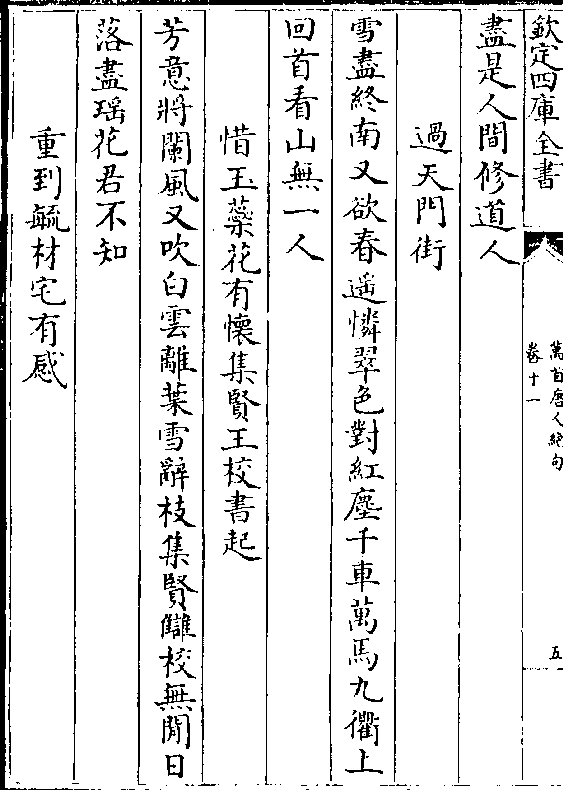 欽定四庫全書
萬首唐人絶句
卷十一
五
盡是人間修道人
過天門街
雪盡終南又欲春遥憐翠色對紅塵千車萬馬九衢上
回首看山無一人
惜玉蘂花有懷集賢王校書起
芳意將闌風又吹白雲離葉雪辭枝集賢讎校無閒日
落盡瑶花君不知
重到毓材宅有感